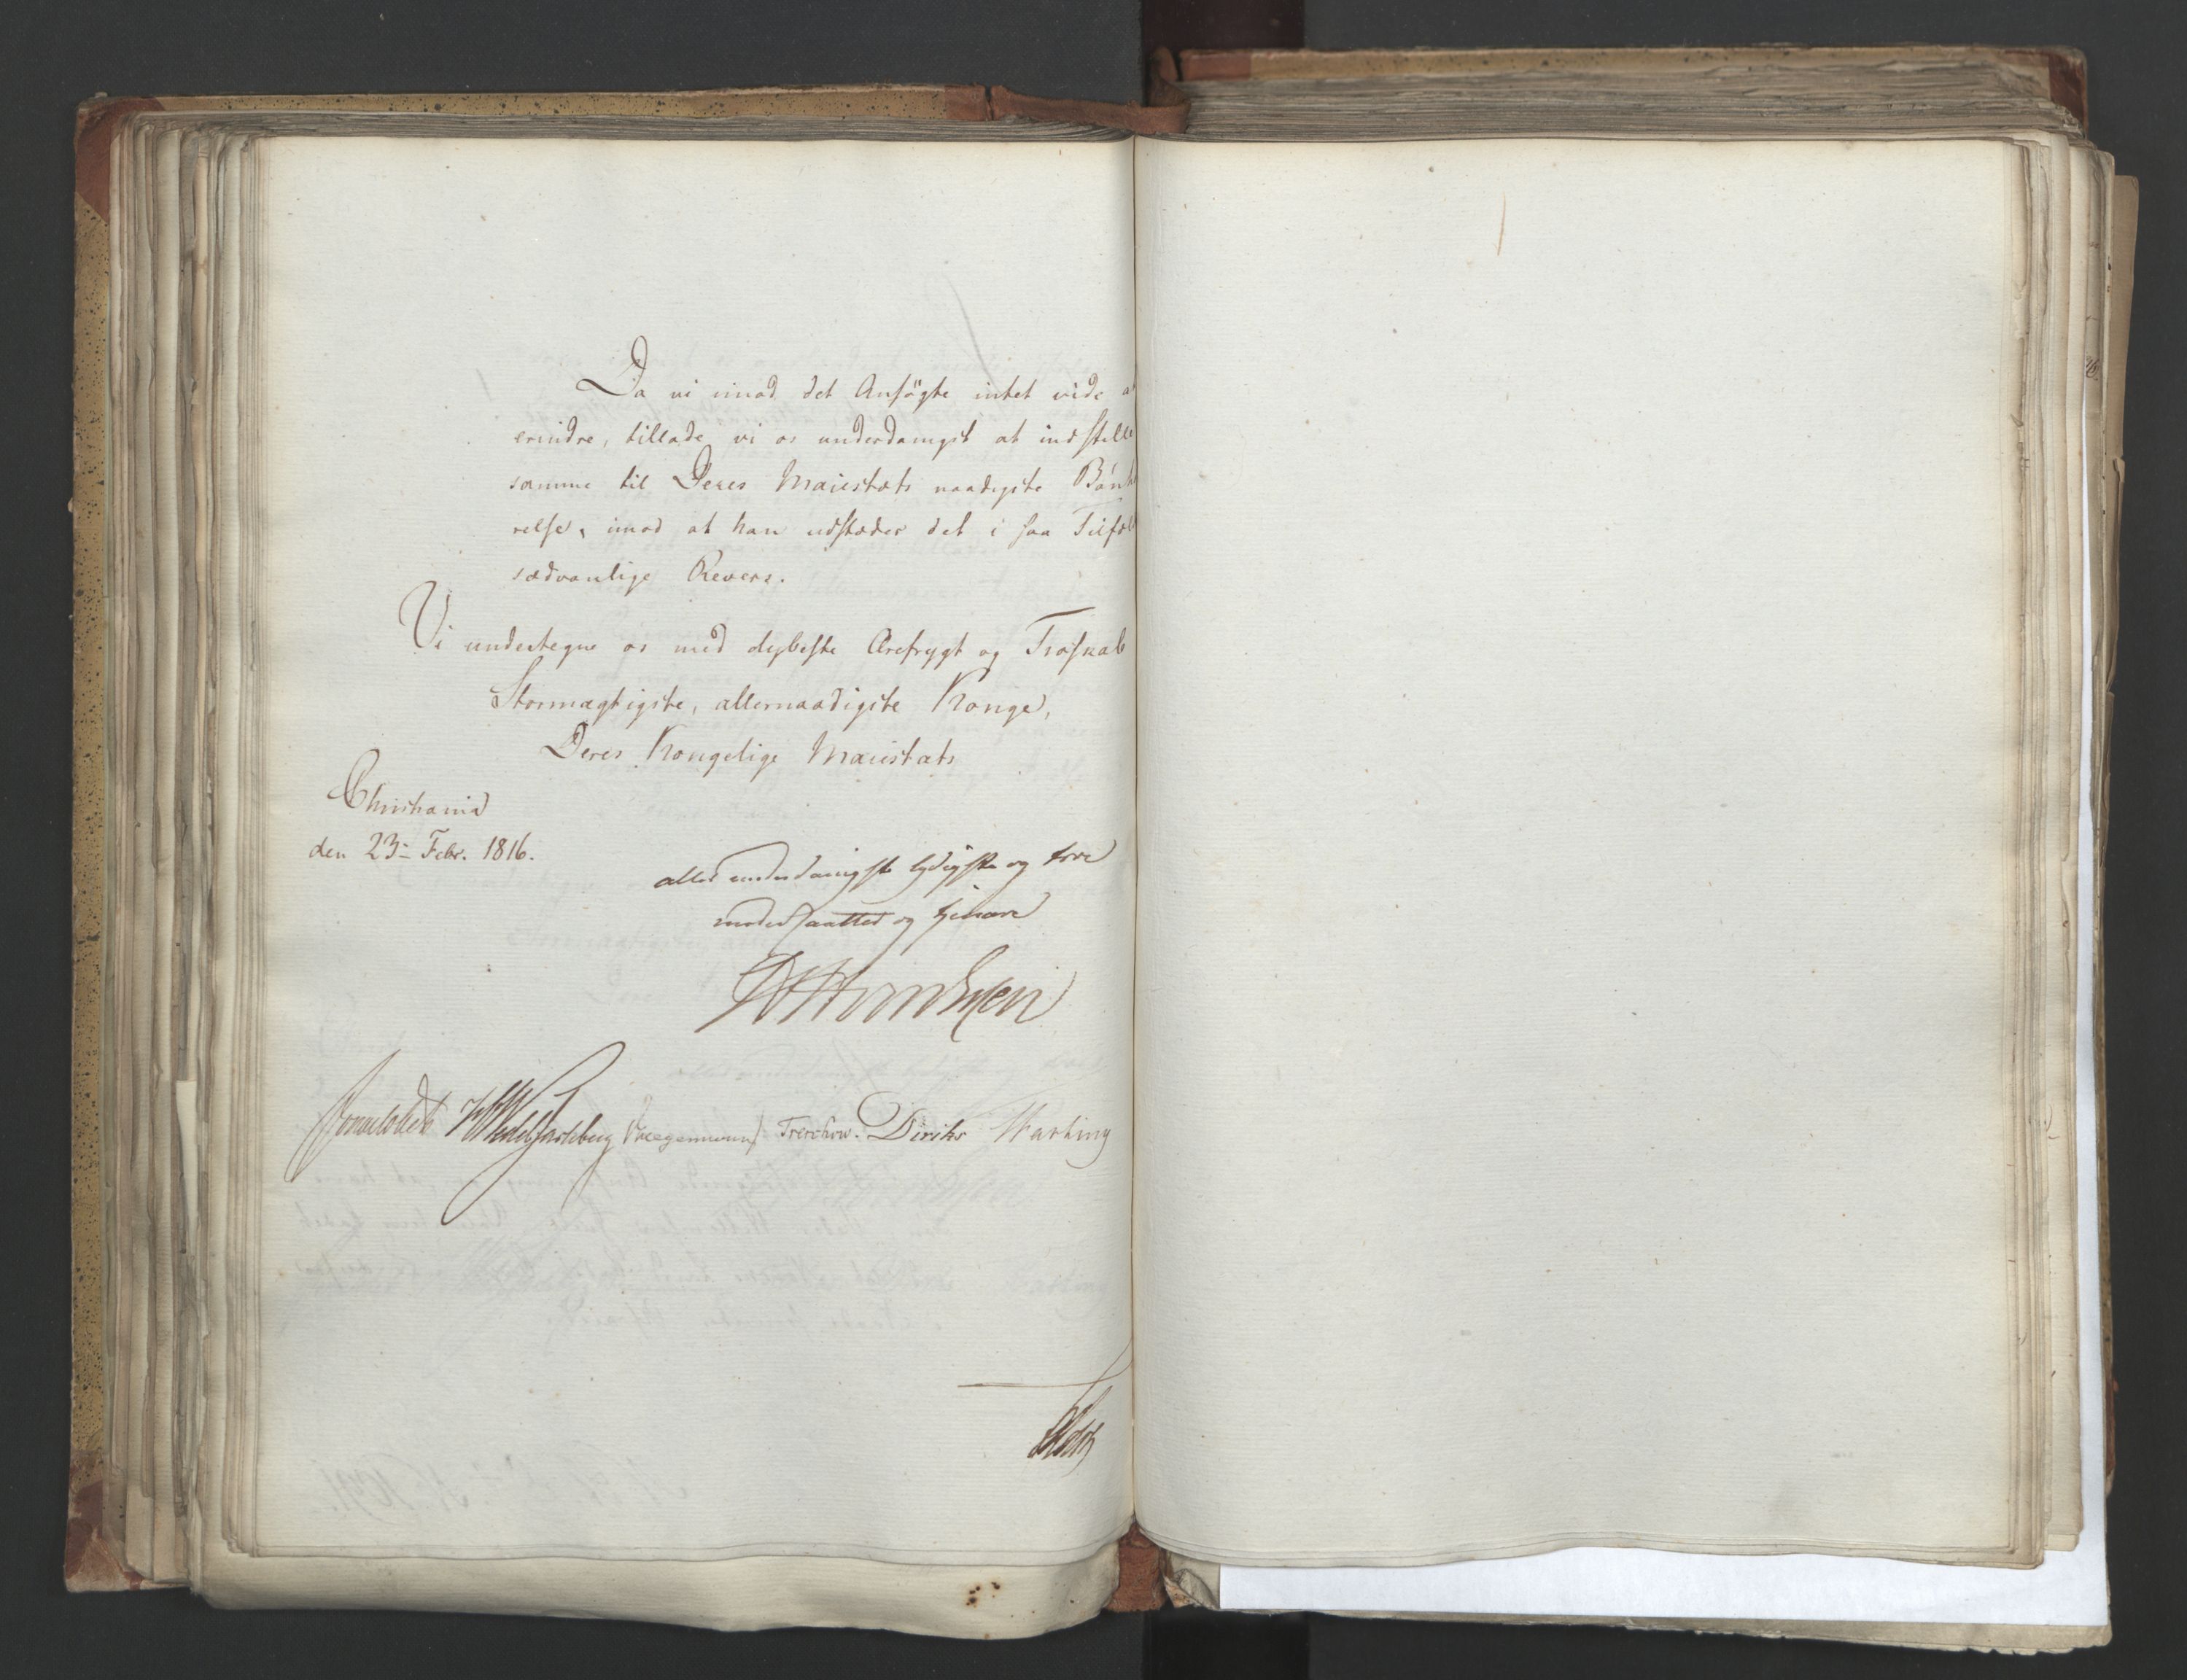 Da vi imod det Ansøgte intet vide a
erindre, tillade vi os underdanigst at indstille
samme til Deres Majestæts naadigste Bønhø
relse, imod at han udsteder det i saa Tilfæl
sædvanlige Revers.
Vi undertegne os med dybeste Ærefrygt og Troskab
Stormægtigste, allernaadigste Konge,
Deres Kongelige Majestæts
Christiania
den 23de Febr. 1816.
allerunderdanigste lydigste og troe
undersaatter og tjenere
Sommerhielm HWedelJarlsberg Treschow. Diriks Hartung
Holst